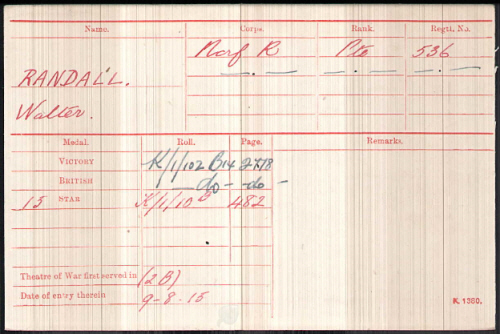 Name. Corps. Rank. Regtl. No.
Norf R Pte 536
RANDALL.
Walter.
Medal. Roll. Page. Remarks.
VICTORY K/1/102 B14 2778
BRITISH — do — — do —
15 STAR K/1/10 B 482
Theatre of War first served in (2B)
Date of entry therein 9-8-15
K. 1380.